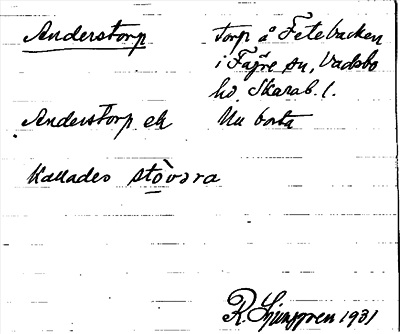 Anderstorp torp å Fetebacken
i Fägre sn, Vadsbo
hd. Skarab. l.
Anderstorp ek Nu borta
Kallades stòvəra
R. Ljunggren 1931